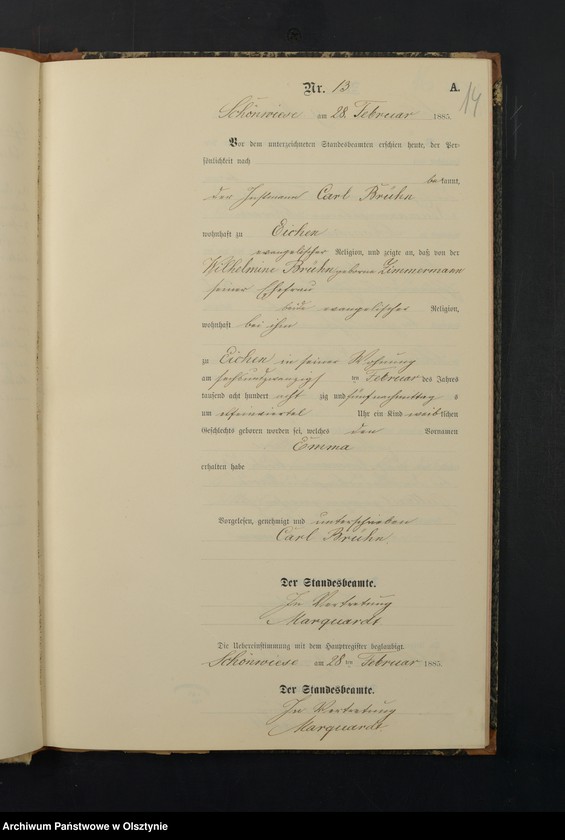 Nr. 13
A.
14
Schönwiese am 28. Februar 1885.
Vor dem unterzeichneten Standesbeamten erschien heute, der Per-
sönlichkeit nach
bekannt,
der Instmann Carl Brühn
wohnhaft zu Eichen
evangelischer Religion, und zeigte an, daß von der
Wilhelmine Brühn geborne Zimmermann
seiner Ehefrau
beide evangelischer Religion,
wohnhaft bei ihm
zu Eichen in seiner Wohnung
am sechsundzwanzigs ten Februar des Jahres
tausend acht hundert acht zig und fünf nachmittag s
um Uhr ein Kind weib lichen
Geschlechts geboren worden sei, welches den Vornamen
Emma
erhalten habe
Vorgelesen, genehmigt und unterschrieben
Carl Brühn.
Der Standesbeamte.
In Vertretung
Marquardt
Die Uebereinstimmung mit dem Hauptregister beglaubigt.
Schönwiese am 28 ten Februar 1885.
Der Standesbeamte.
In Vertretung
Marquardt
Archiwum Państwowe w Olsztynie